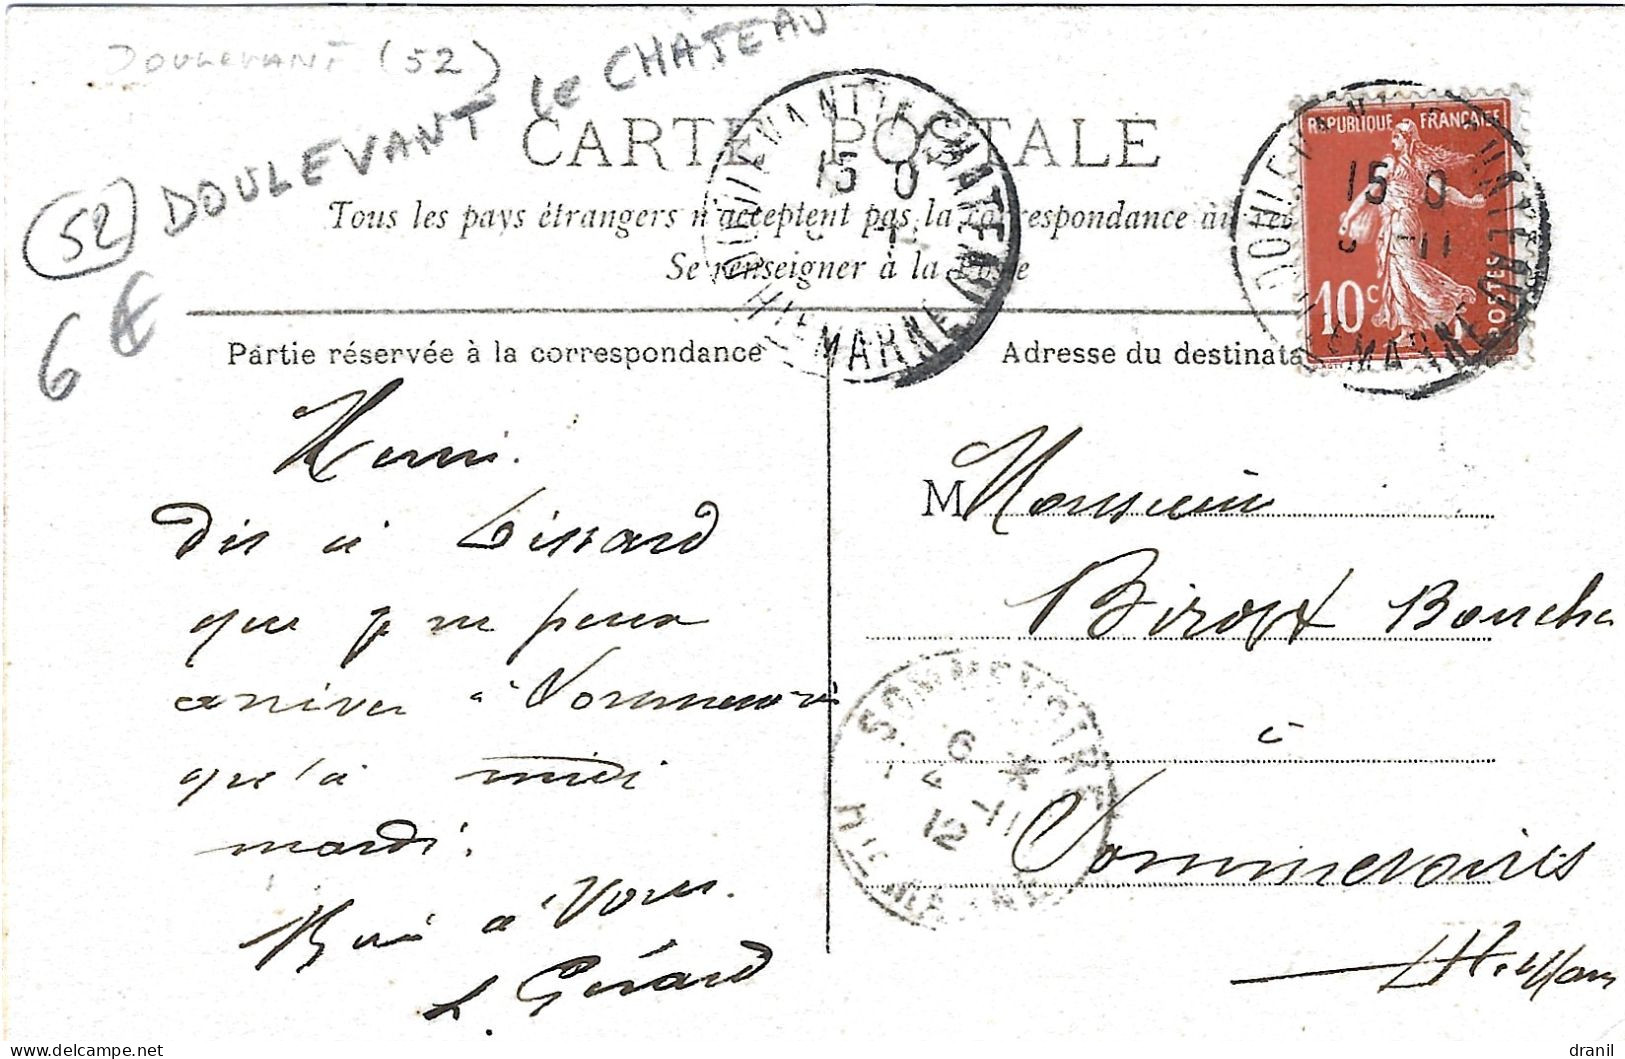 DOULEVANT (52)
(52) DOULEVANT le CHATEAU
6 €
CARTE POSTALE
Tous les pays étrangers n'acceptent pas la correspondance au
Se renseigner à la Poste
DOULEVANT-LE-CHATEAU
15 0
HTE MARNE
REPUBLIQUE FRANÇAISE
10c
POSTES
15 0
-11
Partie réservée à la correspondance
Adresse du destinata
Henri.
dis à Bissard
que je ne peux
arriver à Sommevoire
qu'à midi
mardi.
Bien à Vous.
L. Gérard
M Monsieur
Biroux Boucher
à
Sommevoires
Hte Marne
SOMMEVOIRE
6 *
4 -11
12
HTE MARNE
delcampe.net
dranil